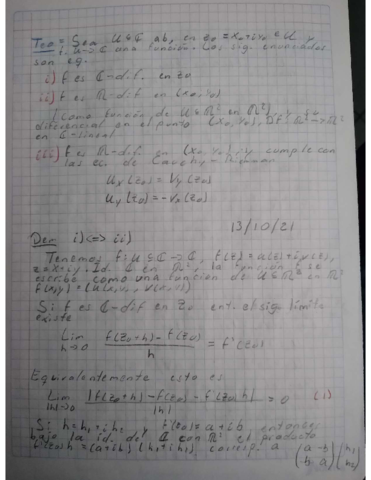 Teo = Sea U⊆ℂ ab, en z₀ = x₀+iy₀ ∈ U y
f: U→ℂ una función. Los sig. enunciados
son eq.
i) f es ℂ-dif. en z₀
ii) f es ℝ-dif en (x₀, y₀)
(como función de U⊆ℝ² en ℝ²) y su
diferencial en el punto (x₀, y₀), Df: ℝ²→ℝ²
es ℂ-lineal
iii) f es ℝ-dif en (x₀, y₀) y cumple con
las ec. de Cauchy-Riemann
uₓ(z₀) = v_y(z₀)
u_y(z₀) = -vₓ(z₀)
13/10/21
Dem i) <=> ii)
Tenemos f: U⊆ℂ→ℂ, f(z) = u(z)+iv(z),
z=x+iy. Id. ℂ en ℝ², la función f se
escribe como una función de U⊆ℝ² en ℝ²
f(x,y) = (u(x,y), v(x,y))
Si f es ℂ-dif en z₀ ent. el sig límite
existe
Lim h→0 f(z₀+h) - f(z₀) / h = f'(z₀)
Equivalentemente esto es
Lim |h|→0 |f(z₀+h) - f(z₀) - f'(z₀)h| / |h| = 0 (1)
Si h = h₁+ih₂ y f'(z₀) = a+ib entonces
bajo la id. de ℂ con ℝ² el producto
f'(z₀)h = (a+ib)(h₁+ih₂) corresp. a (a -b / b a)(h₁ / h₂)